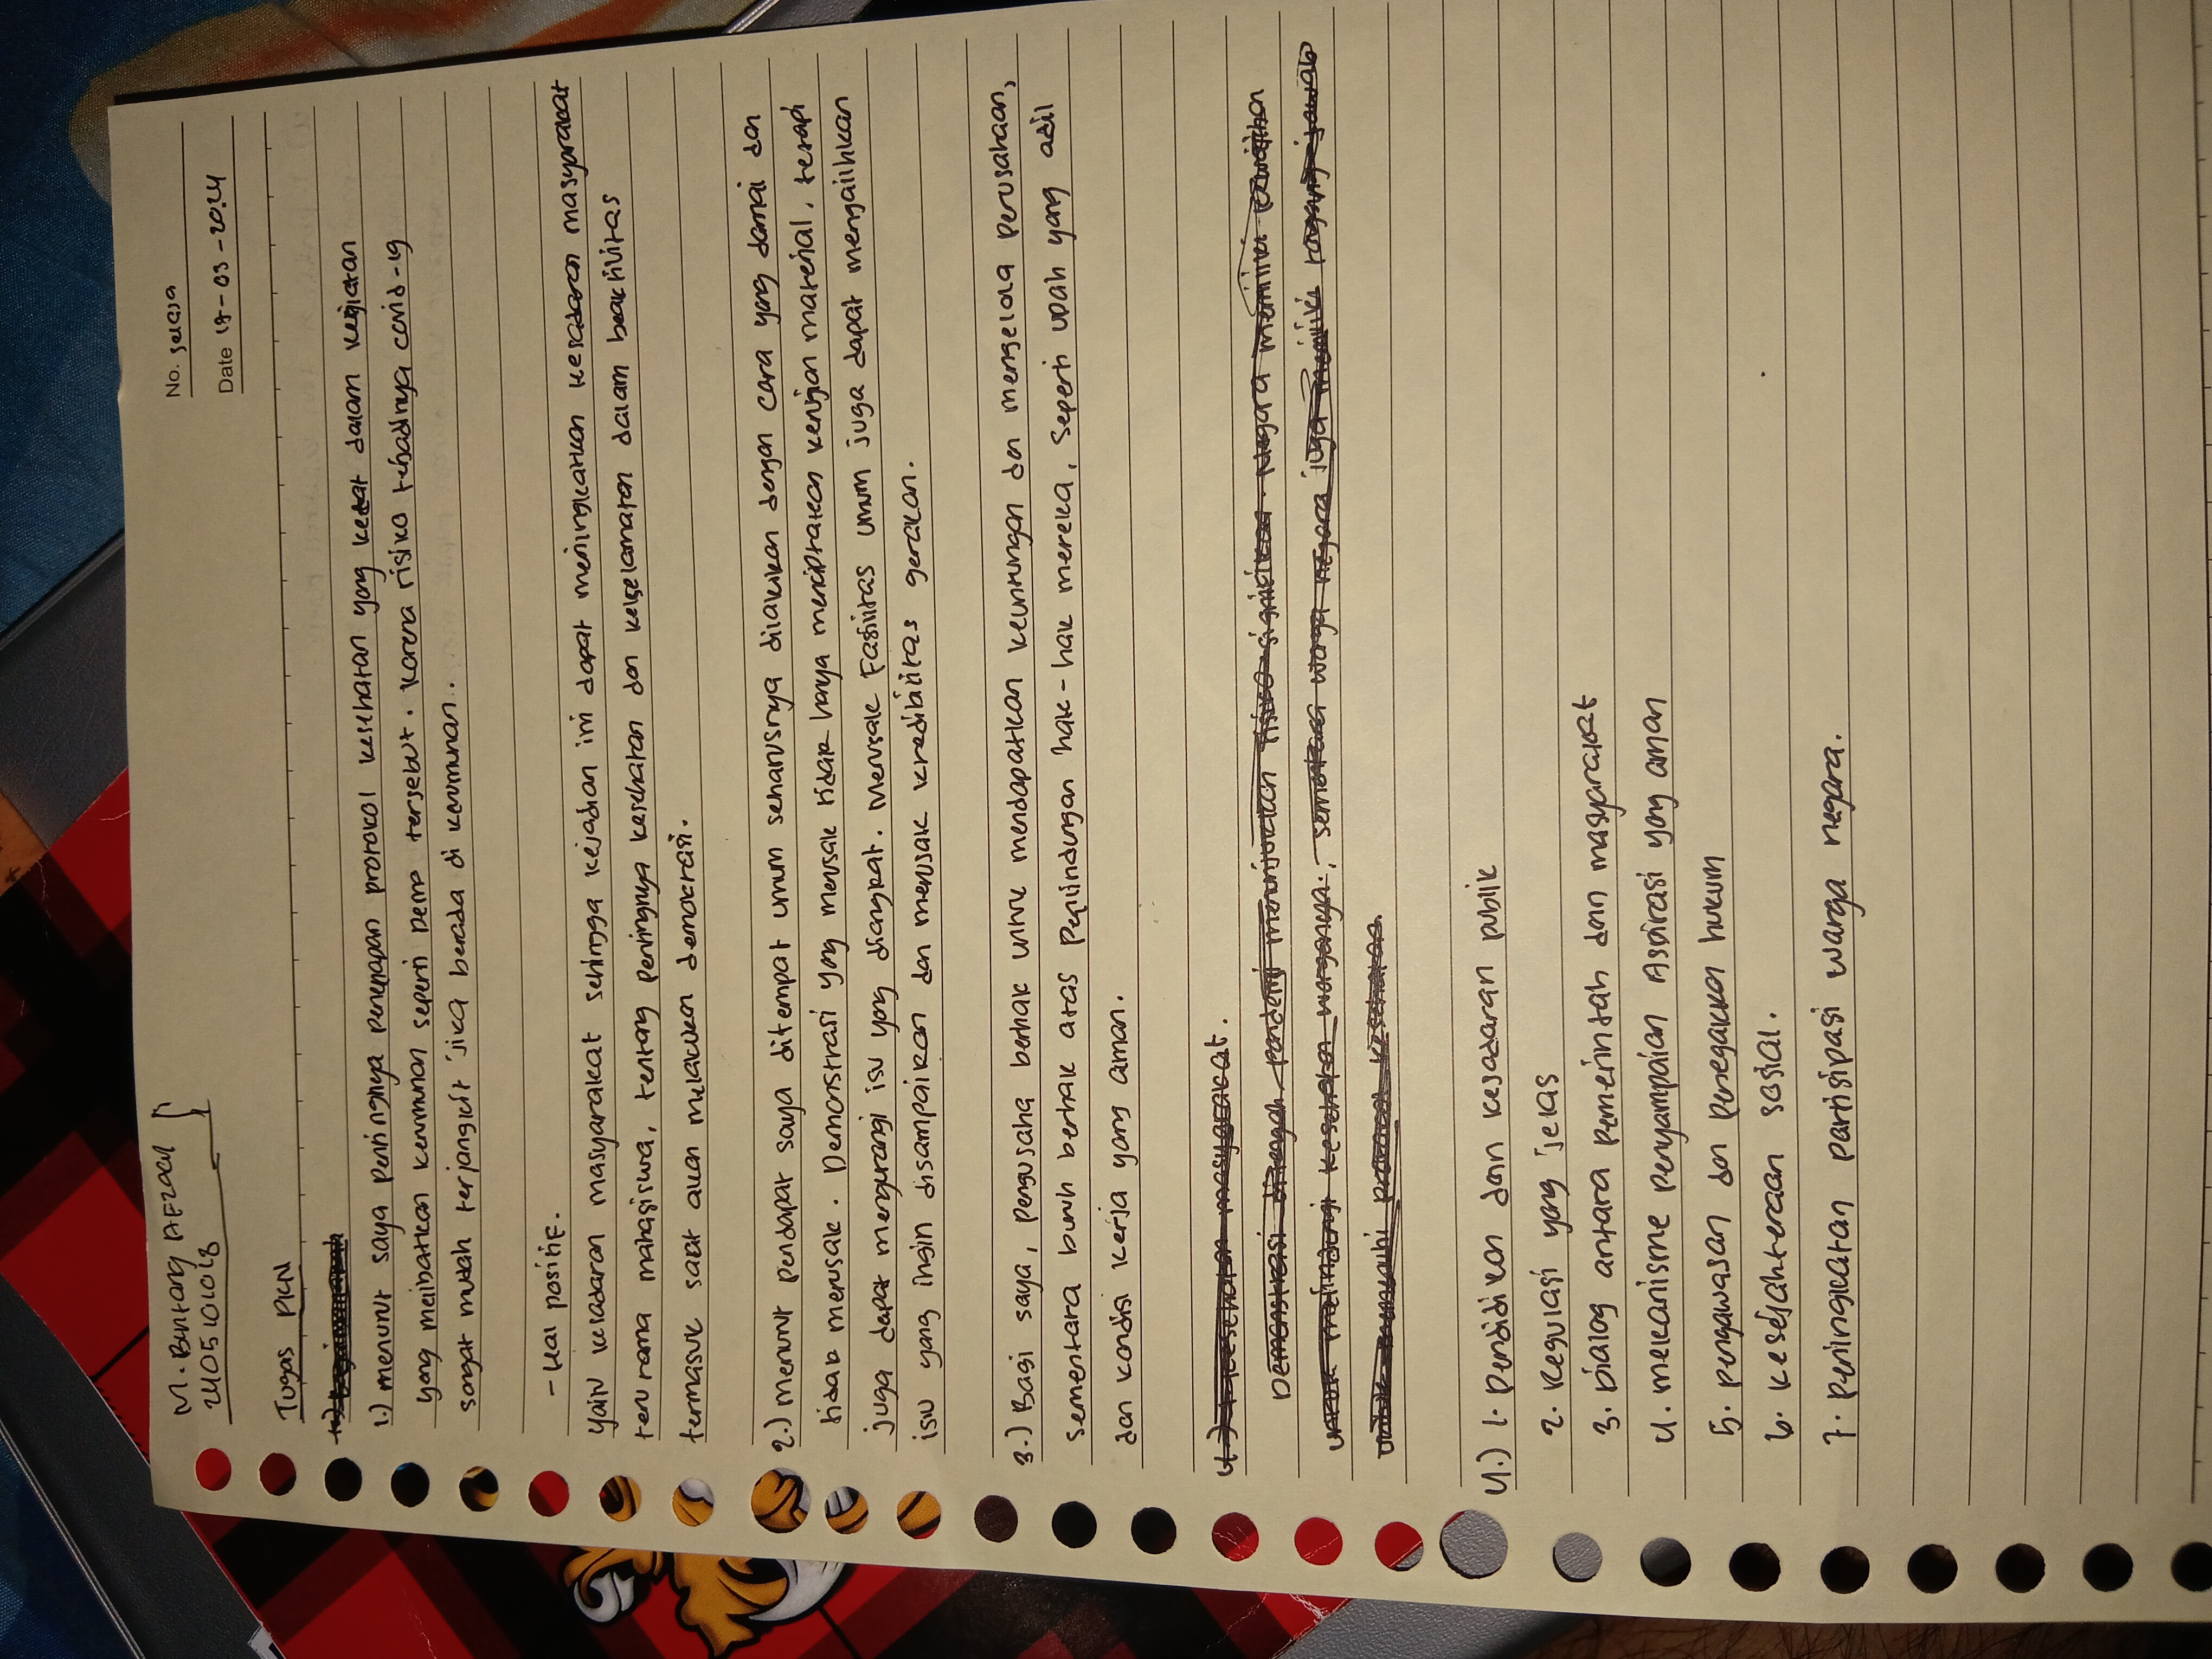 No. selasa
Date 17-09-2024
M. Bintang AFzaal
2405101018
Tugas PKN
1.) menurut saya pentingnya penerapan protokol kesehatan yang ketat dalam kegiatan
yang melibatkan kerumunan seperti demo tersebut. karena risiko tehadnya covid-19
sangat mudah terjangkit jika berada di kerumunan.
- Hal positif.
yaitu kesadaran masyarakat sehingga kejadian ini dapat meningkatkan kesadaran masyarakat
terutama mahasiswa, tentang pentingnya kesehatan dan keselamatan dalam beaktivitas
termasuk saat akan melakukan demokrasi.
2.) menurut pendapat saya ditempat umum seharusnya dilakukan dengan cara yang damai dan
tidak merusak. Demonstrasi yang merusak tidak hanya menciptakan kerugian material, tetapi
juga dapat mengurangi isu yang diangkat. Merusak Fasilitas umum juga dapat mengalihkan
isu yang ingin disampaikan dan merusak kredibilitas gerakan.
3.) Bagi saya, pengusaha berhak untuk mendapatkan keuntungan dan mengelola perusahaan,
sementara buruh berhak atas Perlindungan hak-hak mereka, seperti upah yang adil
dan kondisi kerja yang aman.
4.) kesehatan masyarakat.
Demonstrasi ditengah pandemi menunjukkan risiko signifikan. Negara memiliki kewajiban
untuk melindungi kesehatan warganya, sementara warga negara juga memiliki tanggung jawab
untuk mematuhi protokol kesehatan.
4.) 1. Pendidikan dan kesadaran publik
2. Regulasi yang jelas
3. Dialog antara Pemerintah dan masyarakat
4. mekanisme penyampaian Aspirasi yang aman
5. pengawasan dan penegakkan hukum
6. kesejahteraan sosial.
7. peningkatan partisipasi warga negara.